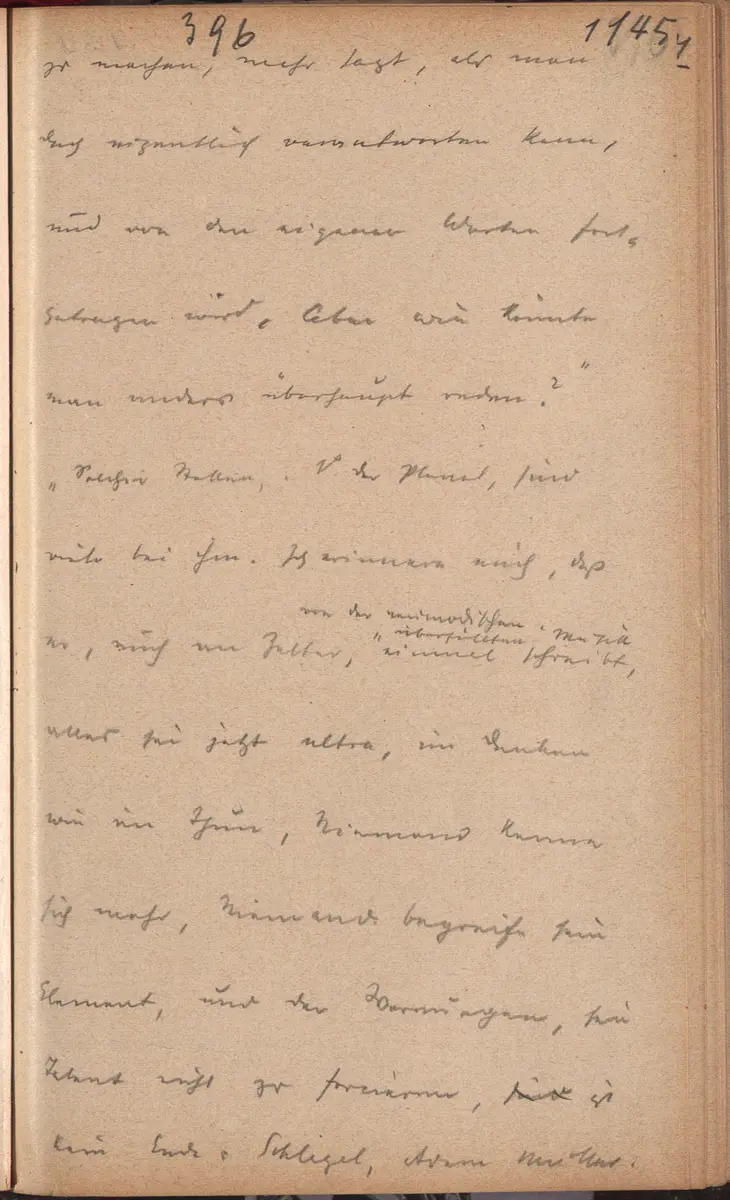 396 1145
zu machen, mehr sagt, als man
doch eigentlich verantworten kann,
und von den eigenen Worten fort-
getragen wird. Aber wie könnte
man anders überhaupt reden?"
"Solche Stellen, der Planet, sind
viele bei ihm. Ich erinnere mich, daß
von der neumodischen Musik
"überfüllten
er, auch an Zelter, einmal schreibt,
alles sei jetzt ultra, im Denken
wie im Thun, Niemand kenne
sich mehr, Niemand begreife sein
Element, und der Warnungen, sein
Talent nicht zu forcieren, sind ist
kein Ende. Schlegel, Adam Müller.